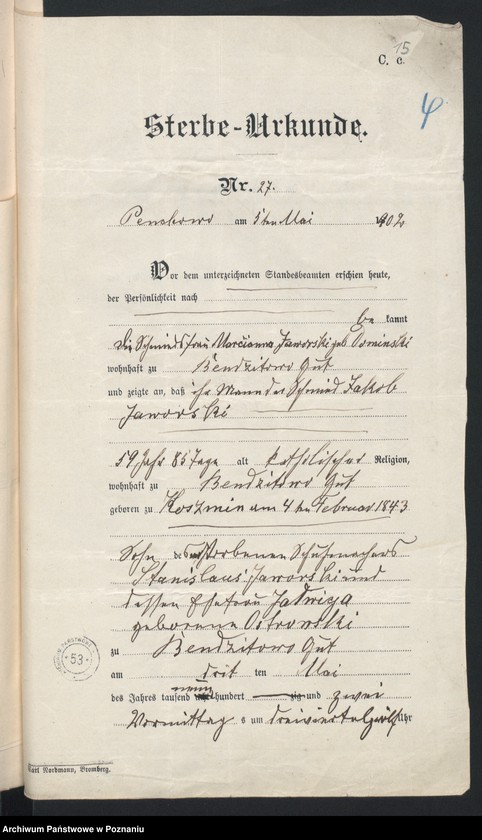 15
C. c.
φ
Sterbe-Urkunde.
Nr. 27.
am 5ten Mai 1902
Vor dem unterzeichneten Standesbeamten erschien heute,
der Persönlichkeit nach
be kannt
Die Schmiedsfrau Marcianna Jaworski geb.
wohnhaft zu Bendzitowo Gut
und zeigte an, daß ihr Mann der Schmied Jakob
Jaworski
59 Jahr 85 Tage alt katholischer Religion,
wohnhaft zu Bendzitowo Gut
geboren zu Koszmin am 4ten Februar 1843
Sohn des verstorbenen Schuhmachers
Stanislaus Jaworski und
dessen Ehefrau Jadwiga
geborene Ostrowski
zu Bendzitowo Gut
am drit ten Mai
neun
des Jahres tausend hundert zig und zwei
Vormittag s um dreiviertelzwölf Uhr
ARCHIWUM PAŃSTWOWE
53
Karl Nordmann, Bromberg.
Archiwum Państwowe w Poznaniu